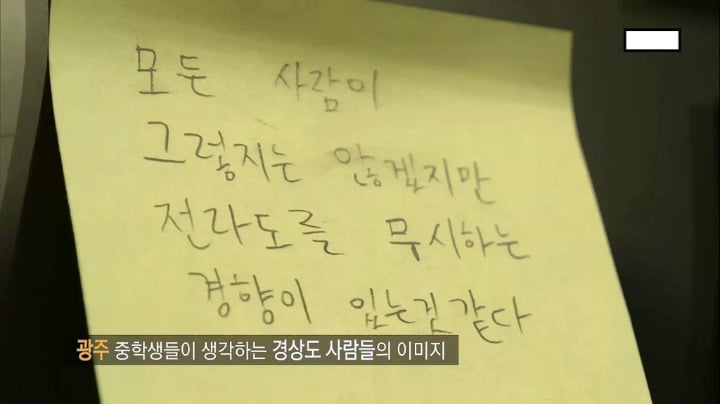 모든 사람이
그렇지는 않겠지만
전라도를 무시하는
경향이 있는것 같다
광주 중학생들이 생각하는 경상도 사람들의 이미지